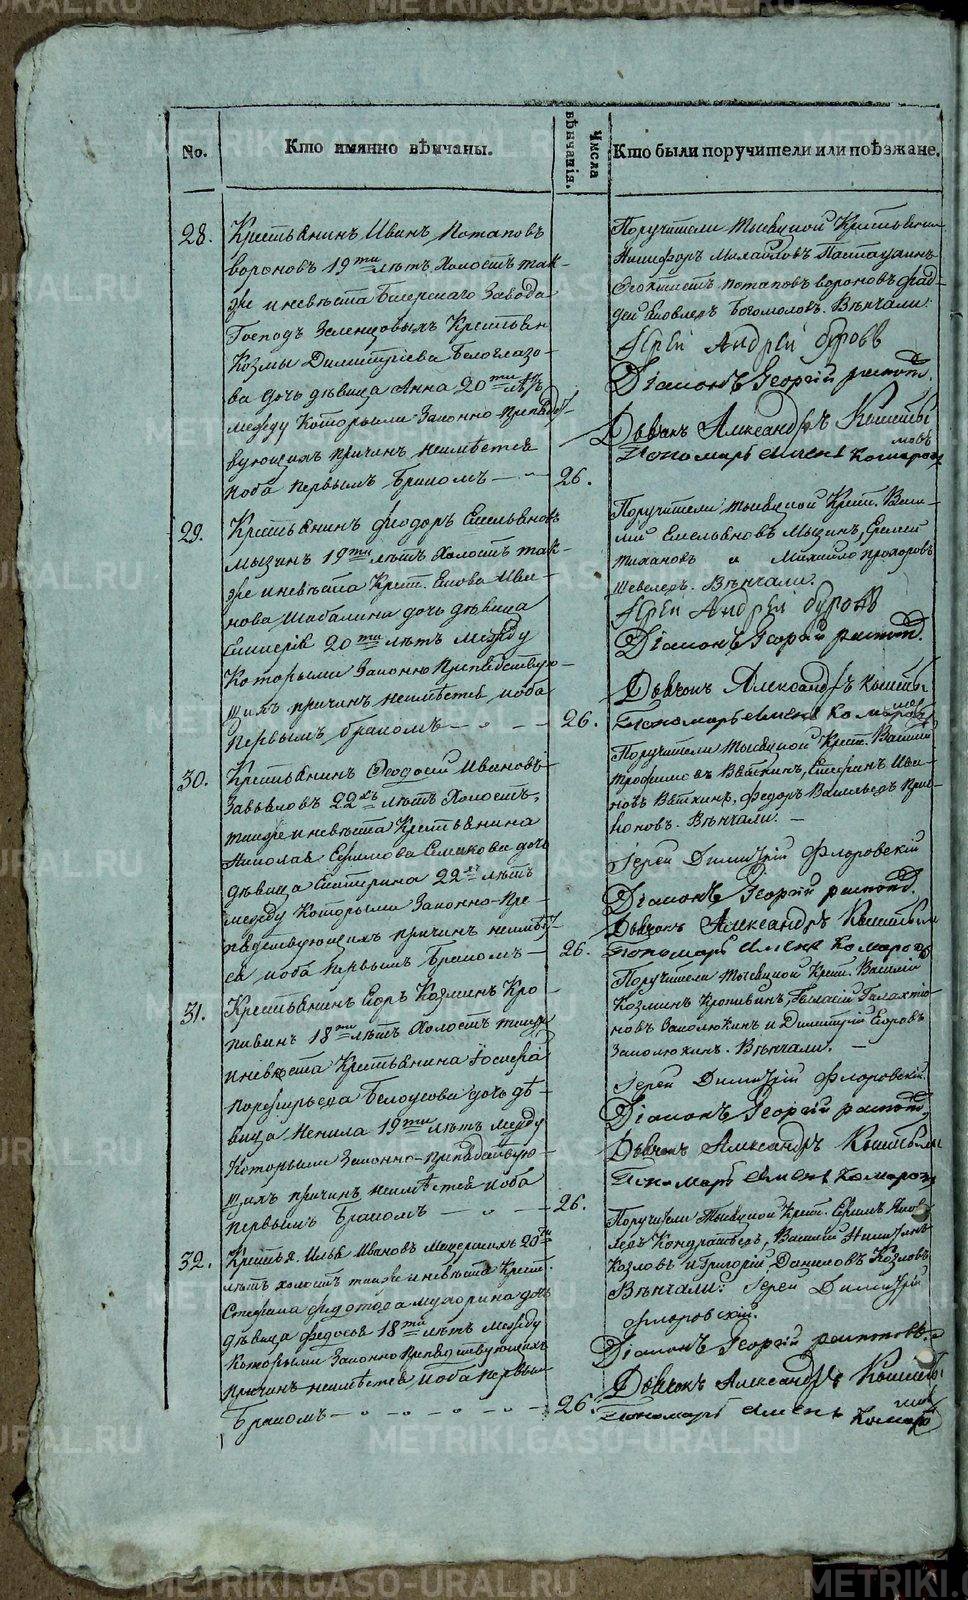 No.
Кто имянно вѣнчаны.
Числа вѣнчанія.
Кто были поручители или поѣзжане.
28.
Крестьянинъ Иванъ Потаповъ
вороновъ 19ти лѣтъ холостъ так-
же и невѣста Бисерскаго Завода
Господъ Крестьян
Козмы Димитріева Белоглазо-
ва дочь дѣвица Анна 20ти лѣтъ
между Которыми Законно-препядст-
вующихъ причинъ неимѣется
поба первымъ бракомъ
26.
Поручители тысяцкой Крестьянин
Никифоръ Михайловъ
Феоктистъ потаповъ вороновъ фад-
дей Яковлевъ Богомоловъ. Вѣнчали:
Іерей Андрей буровъ
Діаконъ Георгій
Дьячокъ Александръ
Пономарь Комаровъ
29.
Крестьянинъ феодоръ Емельяновъ
мызинъ 19ти лѣтъ холостъ так-
же и невѣста Крест. Ива-
нова Шабалина дочь дѣвица
20ти лѣтъ между
Которыми Законно препядствую-
щихъ причинъ неимѣется поба
первымъ бракомъ
26.
Поручители тысяцкой Крест. Васи-
лий Емельяновъ Мызинъ, Еремей
и Михайло прохоровъ
Вѣнчали:
Іерей Андрей буровъ
Діаконъ Георгій
Дьячокъ Александръ
Пономарь Комаровъ
30.
Крестьянинъ Феодосий Ивановъ
Завьяловъ 22хъ лѣтъ холостъ,
также и невѣста Крестьянина
Николая Ефимова дочь
дѣвица Екатерина 22хъ лѣтъ
между Которыми Законно-пре-
пядствующихъ причинъ неимѣет-
ся поба первымъ бракомъ
26.
Поручители тысяцкой Крест. Василий
трофимовъ Вяткинъ, Стефанъ Ива-
новъ Вяткинъ, федоръ Васильевъ
Вѣнчали.
Іерей Димитрій Флоровский
Діаконъ Георгій
Дьячокъ Александръ
Пономарь Комаровъ
31.
Крестьянинъ Егоръ Козминъ Кро-
пивинъ 18ти лѣтъ холостъ также
и невѣста Крестьянина Іосифа
порфирьева Белоусова дочь дѣ-
вица Ненила 19ти лѣтъ между
Которыми Законно-препядствую-
щихъ причинъ неимѣется поба
первымъ бракомъ
26.
Поручители тысяцкой Крест. Василий
Козминъ Кропивинъ, Галактіо-
новъ Заколюкинъ и Димитрій Егоровъ
Заколюкинъ. Вѣнчали.
Іерей Димитрій Флоровский.
Діаконъ Георгій
Дьячокъ Александръ
Пономарь Комаровъ
32.
Крестья. Илья Ивановъ Мещерягинъ 20ти
лѣтъ холостъ также и невѣста Крест.
Стефана федотова мухорина дочь
дѣвица федосья 18ти лѣтъ между
Которыми Законно препядствующихъ
причинъ неимѣется поба первым
бракомъ
26.
Поручители тысяцкой Крест. Ефимъ Яков-
левъ Кондратьевъ, Василий Никитинъ
Козловъ и Григорій Даниловъ Козловъ.
Вѣнчали: Іерей Димитрій
флоровский.
Діаконъ Георгій
Дьячокъ Александръ
Пономарь Комаров
METRIKI.GASO-URAL.RU